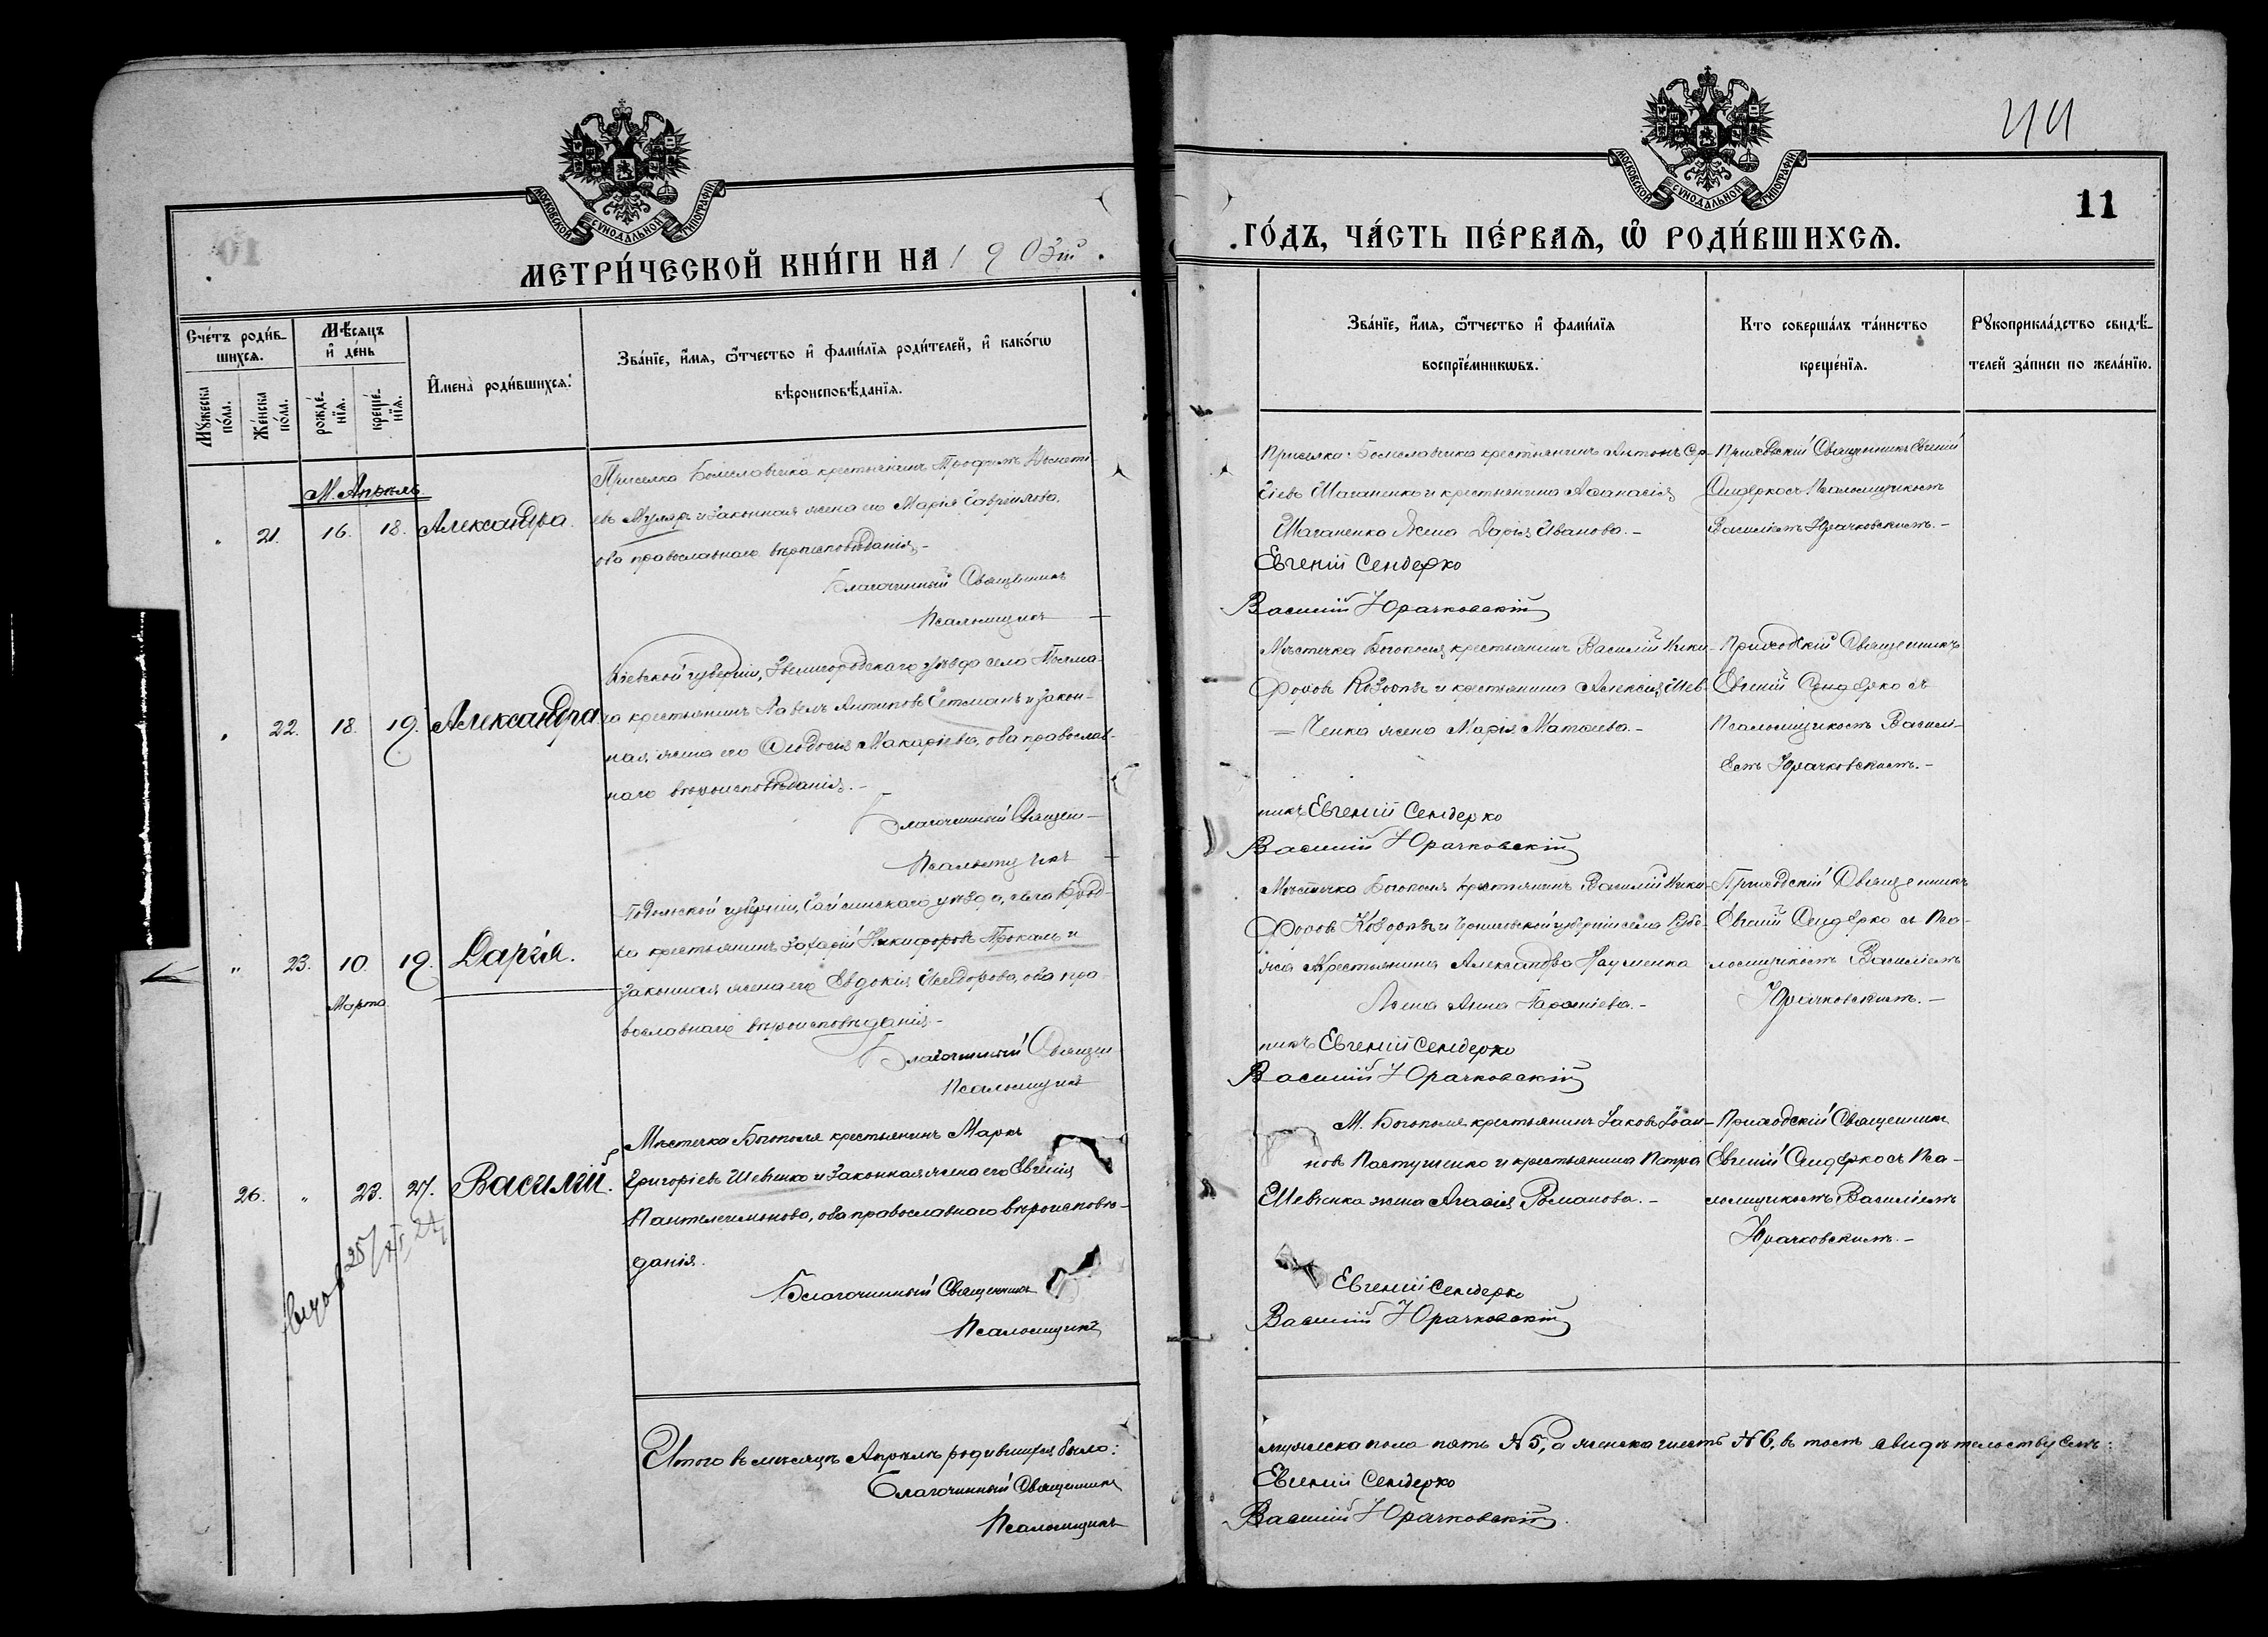 МОСКОВСКОЙ СУНОДАЛЬНОЙ ТИПОГРАФІИ
МЕТРИ́ЧЕСКОЙ КНИ́ГИ НА 1903й
Сче́тъ роди́в-
шихсѧ.
Мѣ́сѧцъ
и҆ де́нь
Мꙋ́жеска
по́ла.
Же́нска
по́ла.
рожде́-
нїѧ.
креще́-
нїѧ.
И҆мена̀ роди́вшихсѧ.
Зва́нїе, и҆́мѧ, ѻ҆́тчество и҆ фами́лїѧ роди́телей, и҆ како́гѡ
вѣроисповѣ́данїѧ.
М. Апрѣль
21. 16. 18. Александра.
Приселка крестьянинъ Трофимъ
евъ Муляръ и законная жена его Марія Гаврилова,
оба православнаго вѣроисповѣданія.-
Благочинный Священникъ
Псаломщикъ
22. 18. 19. Александра
Кіевской губерніи, Звенигородскаго уѣзда села
крестьянинъ Павелъ Антиповъ Гетманъ и закон-
ная жена его Ѳеодосія Макаріева, оба православ-
наго вѣроисповѣданія.-
Благочинный Священ-
Псаломщикъ
" 23. 10. 19. Дарія.
Марта
Подольской губерніи, Гайсинскаго уѣзда, села
крестьянинъ Захарій Никифоровъ и
законная жена его Евдокія Исидорова, оба пра-
вославнаго вѣроисповѣданія.-
Благочинный Священ
Псаломщикъ
26. " 23. 27. Василій.
Мѣстечка Богополя крестьянинъ Маркъ
Григоріевъ Шевченко и законная жена его Евгенія
Пантелеимонова, оба православнаго вѣроисповѣ-
данія.
Благочинный Священникъ
Псаломщикъ
Итого въ мѣсяцѣ Апрѣлѣ родившихся было:
Благочинный Священникъ
Псаломщикъ
44
МОСКОВСКОЙ СУНОДАЛЬНОЙ ТИПОГРАФІИ
11
ГО́ДЪ, ЧА́СТЬ ПЕ́РВАѦ, Ѽ РОДИ́ВШИХСѦ.
Зва́нїе, и҆́мѧ, ѻ҆́тчество и҆ фами́лїѧ
воспрїе́мникѡвъ.
Кто соверша́лъ та́инство
креще́нїѧ.
Рꙋкоприкла́дство свидѣ́-
телей за́писи по жела́нїю.
Приселка крестьянинъ Антонъ Сер-
гіевъ Шаганенко и крестьянина Аѳанасія
Шаганенка жена Дарія Иванова.-
Евгеній Сендерко
Василій Юрачковскій
Приходскій Священникъ Евгеній
Сендерко съ Псаломщикомъ
Василіемъ Юрачковскимъ.-
Мѣстечка Богополя крестьянинъ Василій Ники-
форовъ Козоріз и крестьянина Алексія Шев-
ченка жена Марія Матѳеева.-
никъ Евгеній Сендерко
Василій Юрачковскій
Приходскій Священникъ
Евгеній Сендерко съ
Псаломщикомъ Василі-
емъ Юрачковскимъ.-
Мѣстечка Богополя крестьянинъ Василій Ники-
форовъ и Черниговской губерніи села
крестьянина Александра Науменка
жена Анна
никъ Евгеній Сендерко
Василій Юрачковскій
Приходскій Священникъ
Евгеній Сендерко съ Пса-
ломщикомъ Василіемъ
Юрачковскимъ.-
М. Богополя крестьянинъ Іаковъ Іоан-
новъ Пастушенко и крестьянина Петра
Шевченка жена Агаѳія Романова.-
Евгеній Сендерко
Василій Юрачковскій
Приходскій Священникъ
Евгеній Сендерко съ Пса-
ломщикомъ Василіемъ
Юрачковскимъ.-
мужеска пола пять №5, а женска шесть №6, въ томъ свидѣтельствуемъ:
Евгеній Сендерко
Василій Юрачковскій.